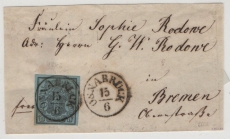 Fräulein Sophie Rodowe
Adr: Herrn G. W. Rodowe
in
Bremen
OSNABRÜCK
15
6